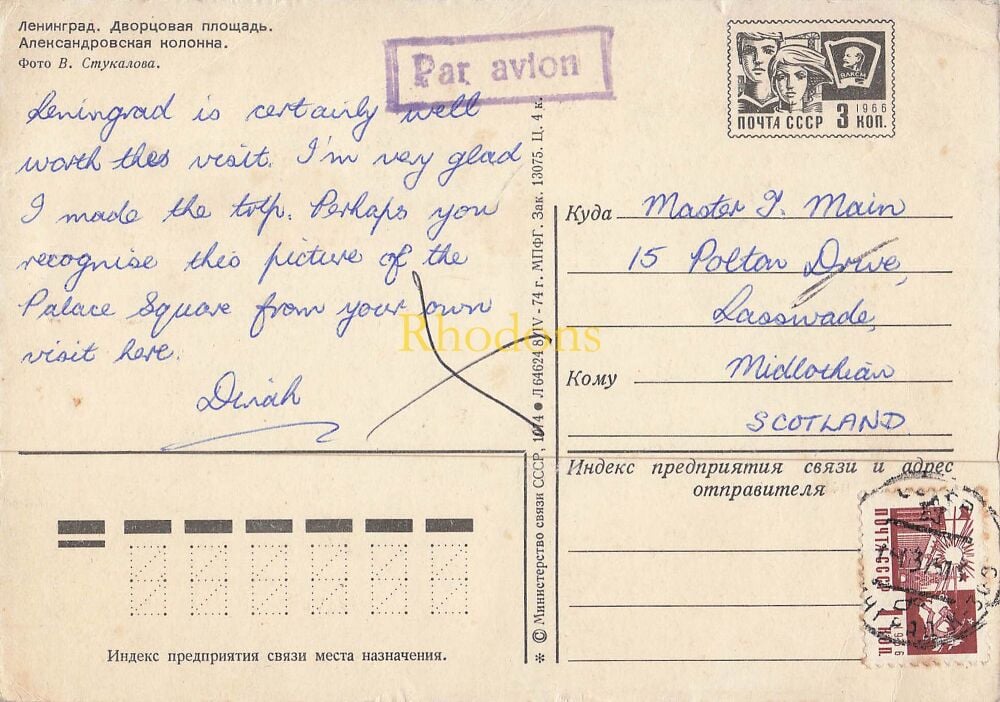 Ленинград. Дворцовая площадь.
Александровская колонна.
Фото В. Стукалова.
Par avion
ВЛКСМ
1966
ПОЧТА СССР 3 КОП.
Leningrad is certainly well
worth this visit. I'm very glad
I made the trip. Perhaps you
recognise this picture of the
Palace Square from your own
visit here.
Dinah
Rhodons
Куда Master J. Main
15 Polton Drive,
Lasswade,
Кому Midlothian
SCOTLAND
Индекс предприятия связи и адрес
отправителя
ПОЧТА СССР 1 КОП.
1966
Индекс предприятия связи места назначения.
* © Министерство связи СССР, 1974 ● Л 64624 8/IV-74 г. МПФГ. Зак. 13075. Ц. 4 к.